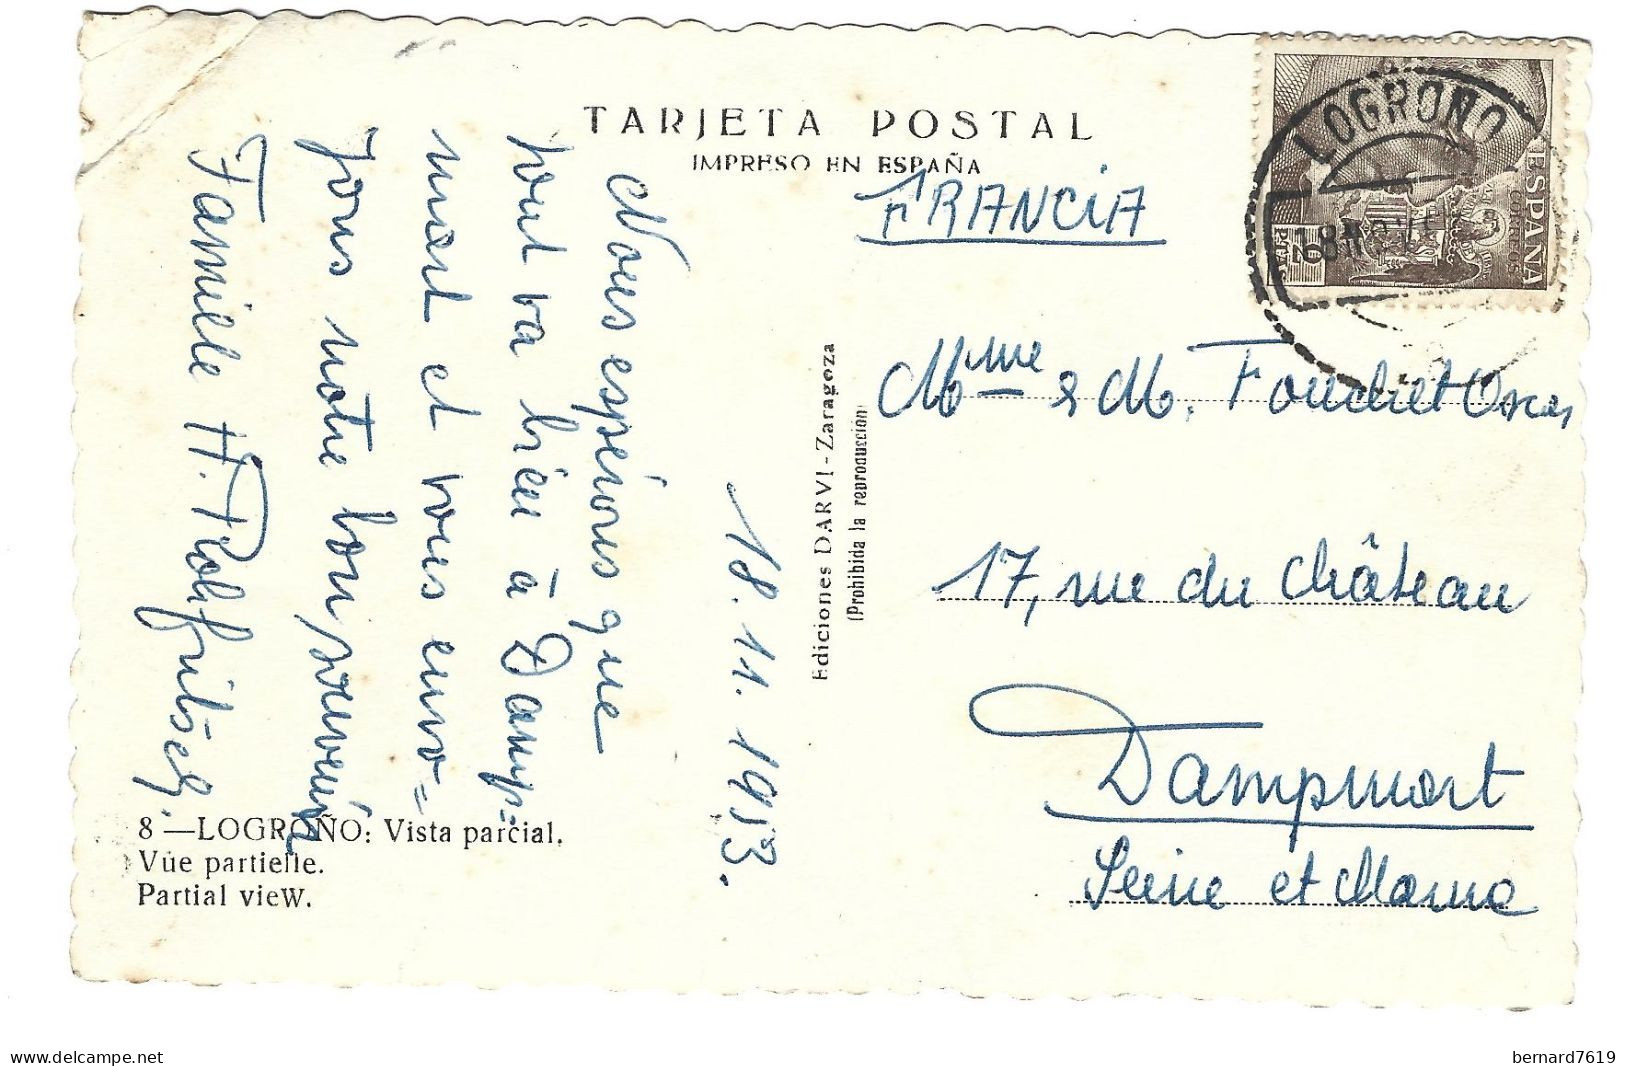 TARJETA POSTAL
IMPRESO EN ESPAÑA
FRANCiA
LOGROÑO
ESPAÑA
CORREOS
2 PTAS
18.11.1953.
Nous espérions que
tout va bien à Damp=
mart et vous envo=
yons notre bon souvenir
Famille H.
Ediciones DARVI-Zaragoza
(Prohibida la reproducción)
Mme & M. Fouchet Oscar
17, rue du Château
Dampmart
Seine et Marne
8 —LOGROÑO: Vista parcial.
Vue partielle.
Partial vieW.
delcampe.net
bernard7619